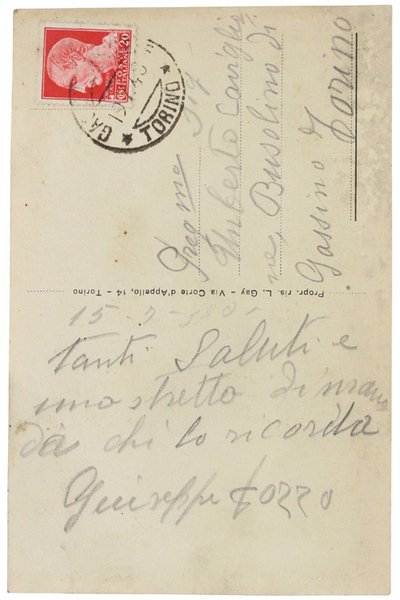 20
TORINO
Pregmo Sg
Umberto Caviglio
ne, Busolino di
Gassino
Torino
Propr. ris. L. Gay - Via Corte d'Appello, 14 - Torino
15
tanti Saluti e
una stretto di mano
da chi lo ricorda
Giuseppe Pozzo